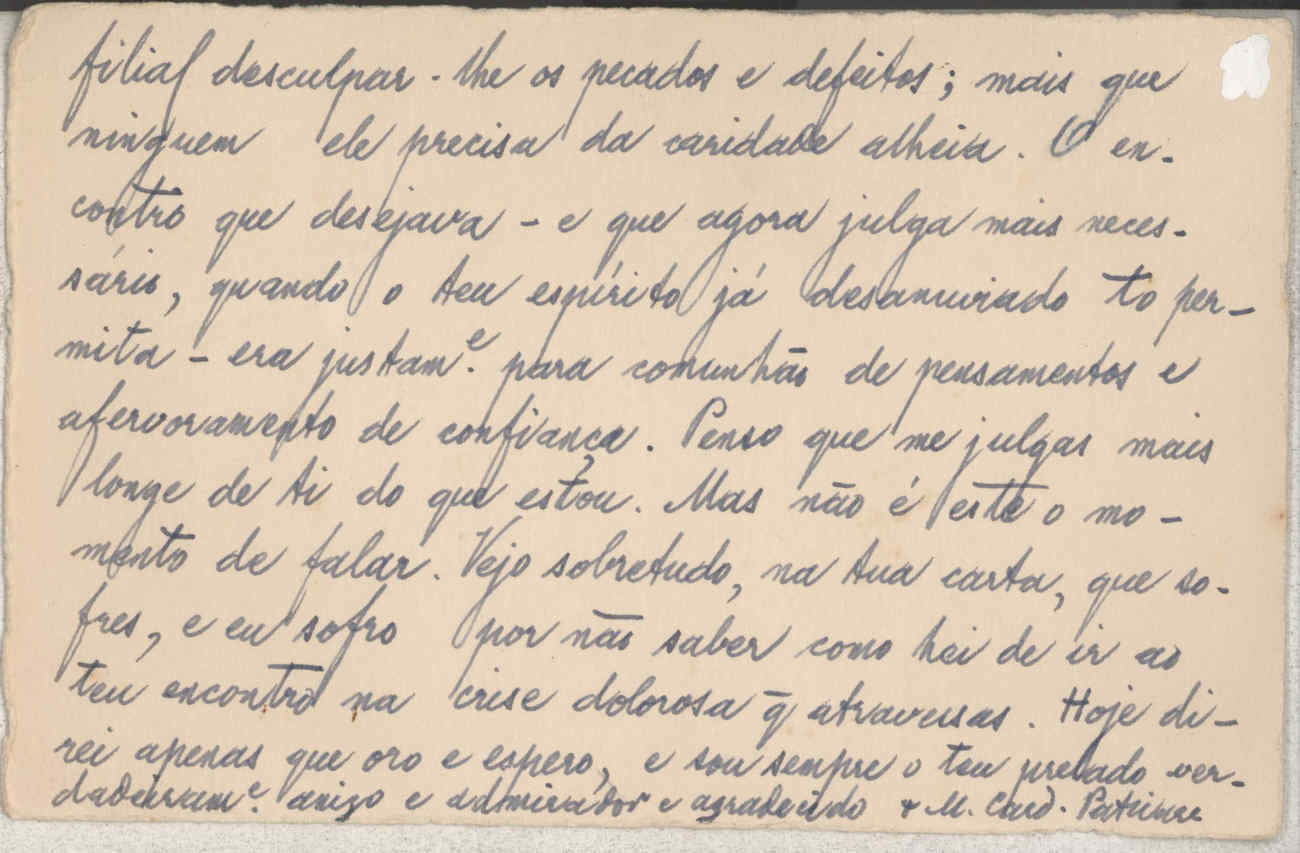 filial desculpar-lhe os pecados e defeitos; mais que
ninguem ele precisa da caridade alheia. O en-
contro que desejava - e que agora julga mais neces-
sário, quando o teu espírito já desanuviado to per-
mita - era justam.e para comunhão de pensamentos e
afervoramento de confiança. Penso que me julgas mais
longe de ti do que estou. Mas não é este o mo-
mento de falar. Vejo sobretudo, na tua carta, que so-
fres, e eu sofro por não saber como hei de ir ao
teu encontro na crise dolorosa q̄ atravessas. Hoje di-
rei apenas que oro e espero, e sou sempre o teu prelado ver-
dadeiram.e amigo e admirador e agradecido + M. Card. Patriarca